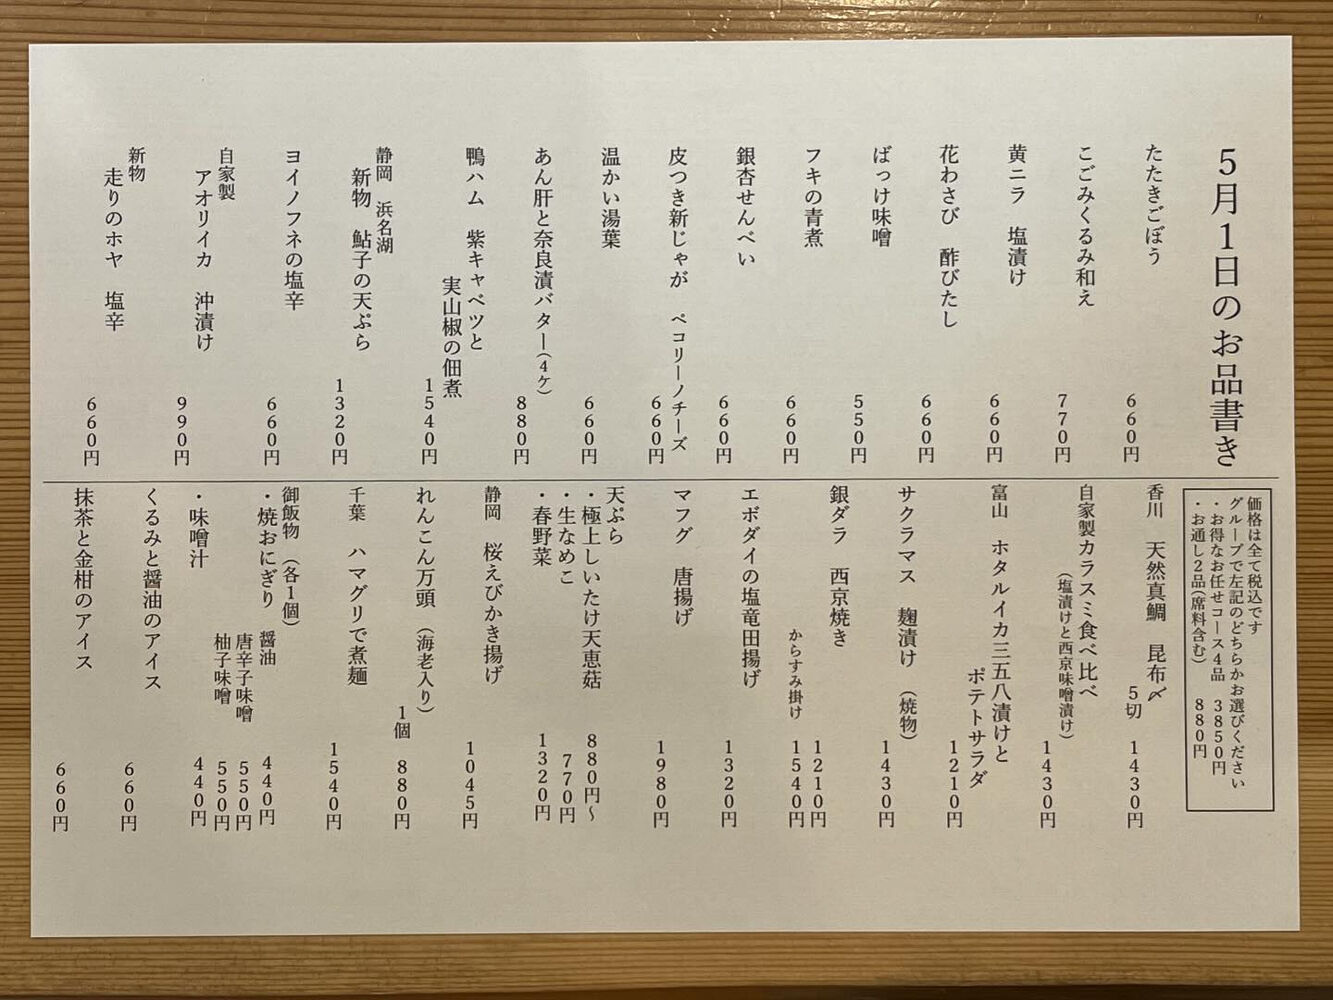 5月1日のお品書き
たたきごぼう 660円
こごみくるみ和え 770円
黄ニラ 塩漬け 660円
花わさび 酢びたし 660円
ばっけ味噌 550円
フキの青煮 660円
銀杏せんべい 660円
皮つき新じゃが ペコリーノチーズ 660円
温かい湯葉 660円
あん肝と奈良漬バター(4ケ) 880円
鴨ハム 紫キャベツと
実山椒の佃煮 1540円
静岡 浜名湖
新物 鮎子の天ぷら 1320円
ヨイノフネの塩辛 660円
自家製
アオリイカ 沖漬け 990円
新物
走りのホヤ 塩辛 660円
価格は全て税込です
グループで左記のどちらかお選びください
・お得なお任せコース4品 3850円
・お通し2品(席料含む) 880円
香川 天然真鯛 昆布〆
5切 1430円
自家製カラスミ食べ比べ
(塩漬けと西京味噌漬け) 1430円
富山 ホタルイカ三五八漬けと
ポテトサラダ 1210円
サクラマス 麹漬け (焼物) 1430円
銀ダラ 西京焼き 1210円
からすみ掛け 1540円
エボダイの塩竜田揚げ 1320円
マフグ 唐揚げ 1980円
天ぷら
・極上しいたけ天恵菇 880円〜
・生なめこ 770円
・春野菜 1320円
静岡 桜えびかき揚げ 1045円
れんこん万頭 (海老入り)
1個 880円
千葉 ハマグリで煮麺 1540円
御飯物 (各1個)
・焼おにぎり 醤油 440円
唐辛子味噌 550円
柚子味噌 550円
・味噌汁 440円
くるみと醤油のアイス 660円
抹茶と金柑のアイス 660円